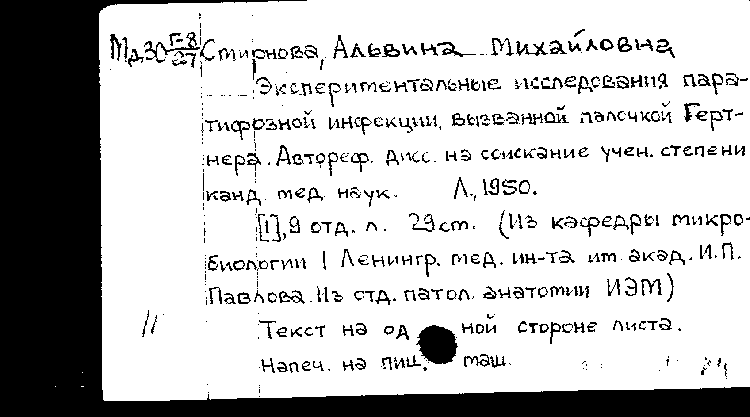 Мд30 Г-8/27 Смирнова, Альвина Михайловна
Экспериментальные исследования пара-
тифозной инфекции, вызванной палочкой Герт-
нера. Автореф. дисс. на соискание учен. степени
канд. мед. наук. Л., 1950.
[1], 9 отд. л. 29 см. (Из кафедры микро-
биологии 1 Ленингр. мед. ин-та им. акад. И.П.
Павлова. Из отд. патол. анатомии ИЭМ)
11 Текст на одной стороне листа.
Напеч. на пиш. маш.